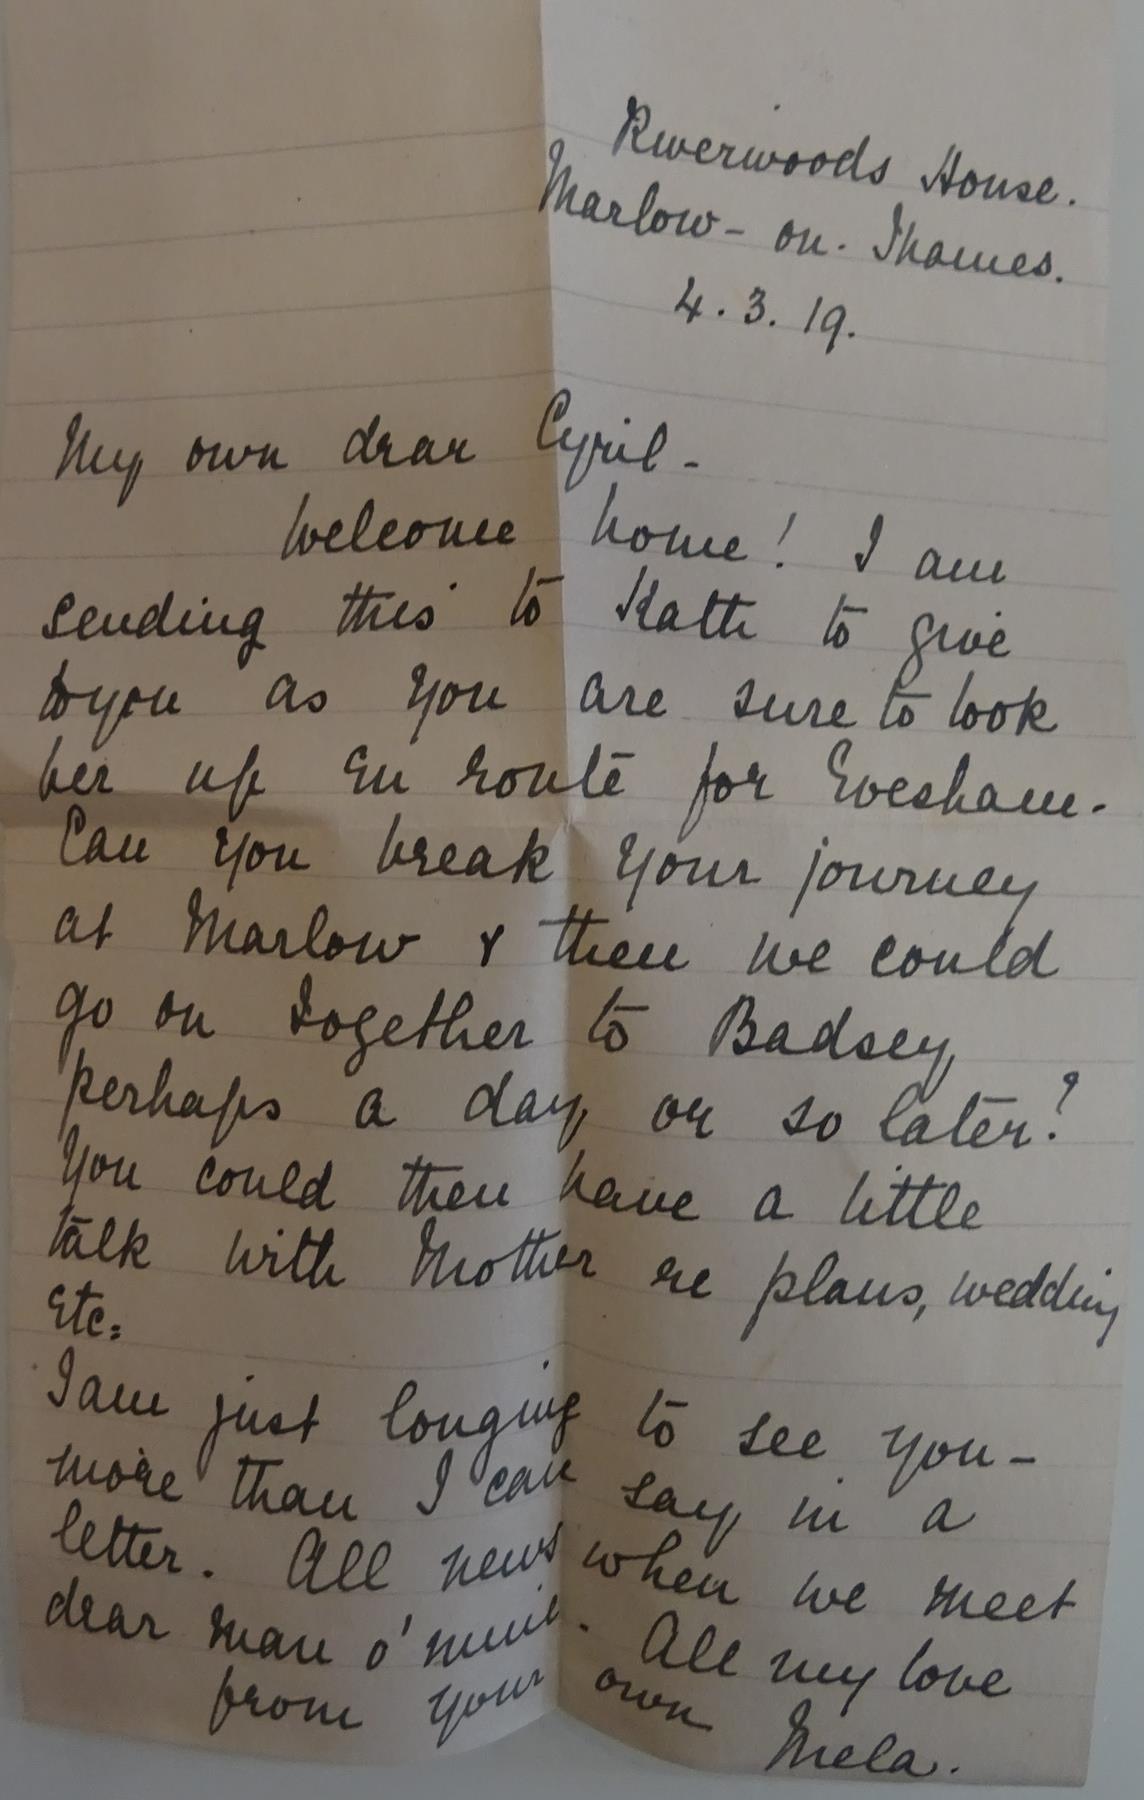 Riverwoods House.
Marlow - on - Thames.
4. 3. 19.
My own dear Cyril -
Welcome home! I am
sending this to Kath to give
to you as you are sure to look
her up en route for Evesham.
Can you break your journey
at Marlow & then we could
go on together to Badsey,
perhaps a day or so later?
You could then have a little
talk with Mother re plans, wedding
etc.
I am just longing to see you -
more than I can say in a
letter. All news when we meet
dear man o' mine. All my love
from your own
Mela.